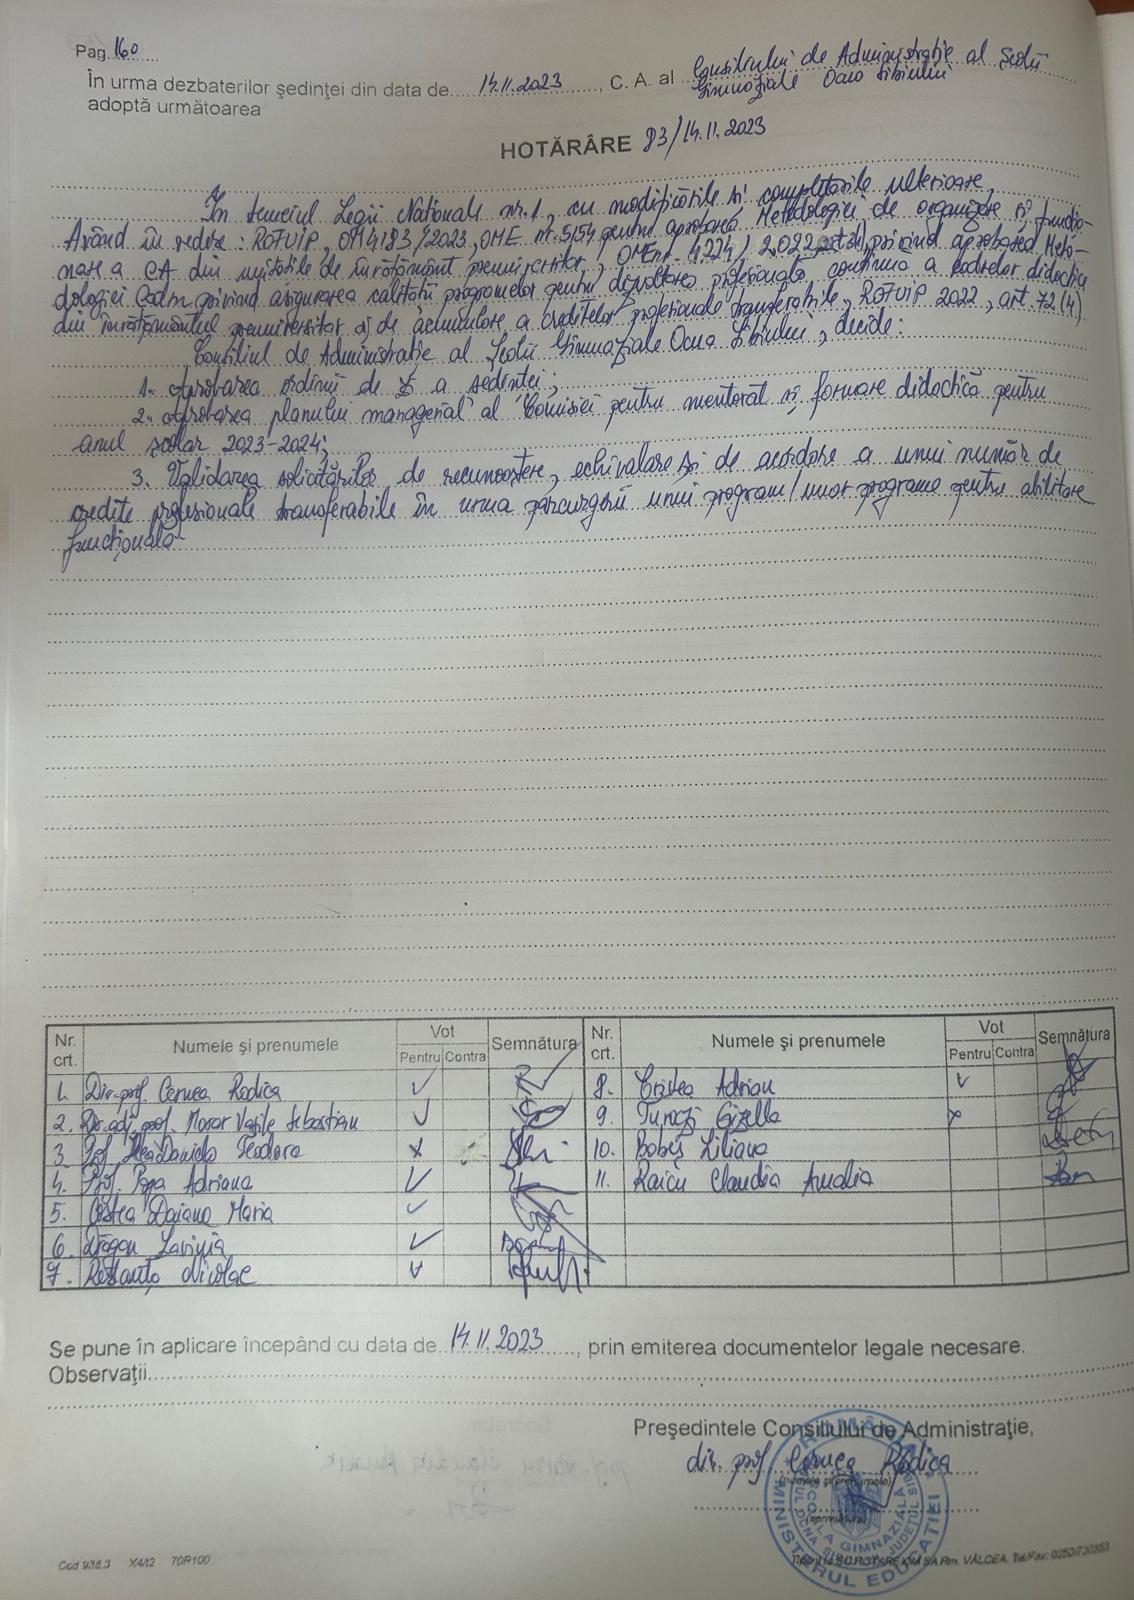 Pag. 160
În urma dezbaterilor ședinței din data de 14.11.2023, C. A. al Consiliului de Administrație al Școlii
Gimnaziale Ocna Sibiului
adoptă următoarea
HOTĂRÂRE 83/14.11.2023
În temeiul Legii Naționale nr. 1, cu modificările și completările ulterioare,
Având în vedere: ROFUIP, OM 4183/2023, OME nr. 5154 pentru aprobarea Metodologiei de organizare și functio-
nare a CA din unitățile de învățământ preuniversitar, OMEnr. 4224/2022 privind aprobarea Meto-
dologiei Cadru privind asigurarea calității programelor pentru dezvoltarea profesională continuă a cadrelor didactice
din învățământul preuniversitar și de acumulare a creditelor profesionale transferabile, ROFUIP 2022, art. 72 (4)
Consiliul de Administrație al Școlii Gimnaziale Ocna Sibiului, decide:
1. Aprobarea ordinii de zi a ședinței;
2. Aprobarea planului managerial al Comisiei pentru mentorat și formare didactică pentru
anul școlar 2023-2024;
3. Validarea solicitărilor de recunoaștere, echivalare și de acordare a unui număr de
credite profesionale transferabile în urma parcurgerii unui program/unor programe pentru abilitare
funcțională
Nr. crt. Numele și prenumele Vot Pentru Contra Semnătura Nr. crt. Numele și prenumele Vot Pentru Contra Semnătura
1. Dir. prof. Cernea Rodica 8. Cristea Adrian
2. Dir. adj. prof. Morar Vasile Sebastian 9. Gizella
3. Prof. Daniela Teodora 10. Bobeș Liliana
4. Prof. Popa Adriana 11. Raicu Claudia Amalia
5. Cristea Daiana Maria
6. Drăgan Lavinia
7. Nicolae
Se pune în aplicare începând cu data de 14.11.2023, prin emiterea documentelor legale necesare.
Observații
Președintele Consiliului de Administrație,
dir. prof. Cernea Rodica
(numele și prenumele)
(semnătura)
Cod 938.3 X4/t2 70R100